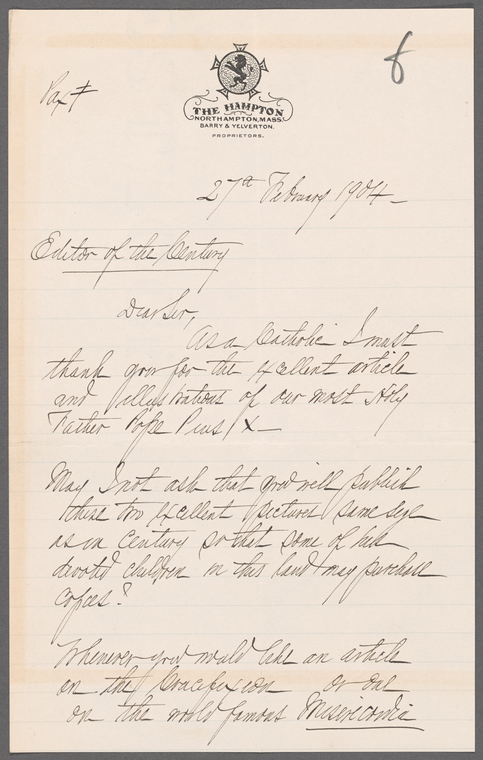 6
Pax ‡
THE HAMPTON
NORTHAMPTON, MASS.
BARRY & YELVERTON.
PROPRIETORS.
27th February 1904 –
Editor of the Century
Dear Sir,
As a Catholic I must
thank you for the excellent article
and illustrations of our most Holy
Father Pope Pius X –
May I not ask that you will publish
these two excellent pictures same size
as in Century so that some of his
devoted children in this land may purchase
copies?
Whenever you would like an article
on the Crucifixion or one
on the world famous Misericordia